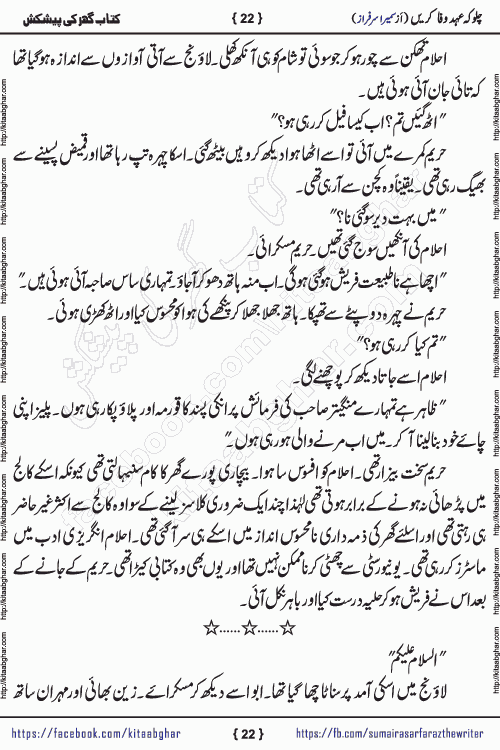 چلو کہ عہدِ وفا کریں (از سمیرا سرفراز)
{ 22 }
کتاب گھر کی پیشکش
احلام تھکن سے چور ہو کر جو سوئی تو شام کو ہی آنکھ کھلی۔ لاؤنج سے آتی آوازوں سے اندازہ ہو گیا تھا
کہ تائی جان آئی ہوئی ہیں۔
"اٹھ گئیں تم؟ اب کیسا فیل کر رہی ہو؟"
حریم کمرے میں آئی تو اسے اٹھا ہوا دیکھ کر وہیں بیٹھ گئی۔ اسکا چہرہ تپ رہا تھا اور قمیض پسینے سے
بھیگ رہی تھی۔ یقیناً وہ کچن سے آ رہی تھی۔
"میں بہت دیر سو گئی نا؟"
احلام کی آنکھیں سوج گئی تھیں۔ حریم مسکرائی۔
"اچھا ہے نا طبیعت فریش ہو گئی ہو گی۔ اب منہ ہاتھ دھو کر آ جاؤ۔ تمہاری ساس صاحبہ آئی ہوئی ہیں۔"
حریم نے چہرہ دوپٹے سے تھپکا۔ ہاتھ جھلا جھلا کر پنکھے کی ہوا کو محسوس کیا اور اٹھ کھڑی ہوئی۔
"تم کیا کر رہی ہو؟"
احلام اسے جاتا دیکھ کر پوچھنے لگی۔
"ظاہر ہے تمہارے منگیتر صاحب کی فرمائش پر انکی پسند کا قورمہ اور پلاؤ پکا رہی ہوں۔ پلیز اپنی
چائے خود بنا لینا آ کر۔ میں اب مرنے والی ہو رہی ہوں۔"
حریم سخت بیزار تھی۔ احلام کو افسوس سا ہوا۔ بیچاری پورے گھر کا کام سنبھالتی تھی کیونکہ اسکے کالج
میں پڑھائی نہ ہونے کے برابر ہوتی تھی لہٰذا چند ایک ضروری کلاسز لینے کے سوا وہ کالج سے اکثر غیر حاضر
ہی رہتی تھی اور اسلئے گھر کی ذمہ داری نا محسوس انداز میں اسکے ہی سر آ گئی تھی۔ احلام انگریزی ادب میں
ماسٹرز کر رہی تھی۔ یونیورسٹی سے چھٹی کرنا ممکن نہیں تھا اور یوں بھی وہ کتابی کیڑا تھی۔ حریم کے جانے کے
بعد اس نے فریش ہو کر حلیہ درست کیا اور باہر نکل آئی۔
☆......☆......☆
"السلام علیکم"
لاؤنج میں اسکی آمد پر سناٹا چھا گیا تھا۔ ابو اسے دیکھ کر مسکرائے۔ زین بھائی اور مہران ساتھ
https://facebook.com/kitaabghar
{ 22 }
https://fb.com/sumairasarfarazthewriter
http://kitaabghar.com